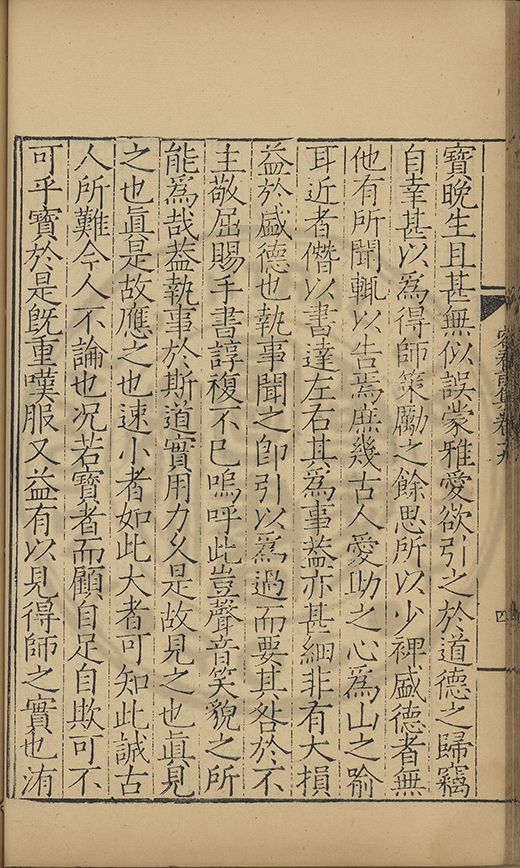 寶晚生且甚無似誤蒙雅愛欲引之於道德之歸竊
自幸甚以爲得師策勵之餘思所以少裨盛德者無
他有所聞輒以告焉庶幾古人愛助之心爲山之喻
耳近者僭以書達左右其爲事葢亦甚細非有大損
益於盛德也執事聞之卽引以爲過而要其咎於不
主敬屈賜手書諄複不已嗚呼此豈聲音笑貌之所
能爲哉葢執事於斯道實用力久是故見之也眞見
之也眞是故應之也速小者如此大者可知此誠古
人所難今人不論也况若寶者而顧自足自欺可不
可乎寶於是旣重嘆服又益有以見得師之實也洧
四